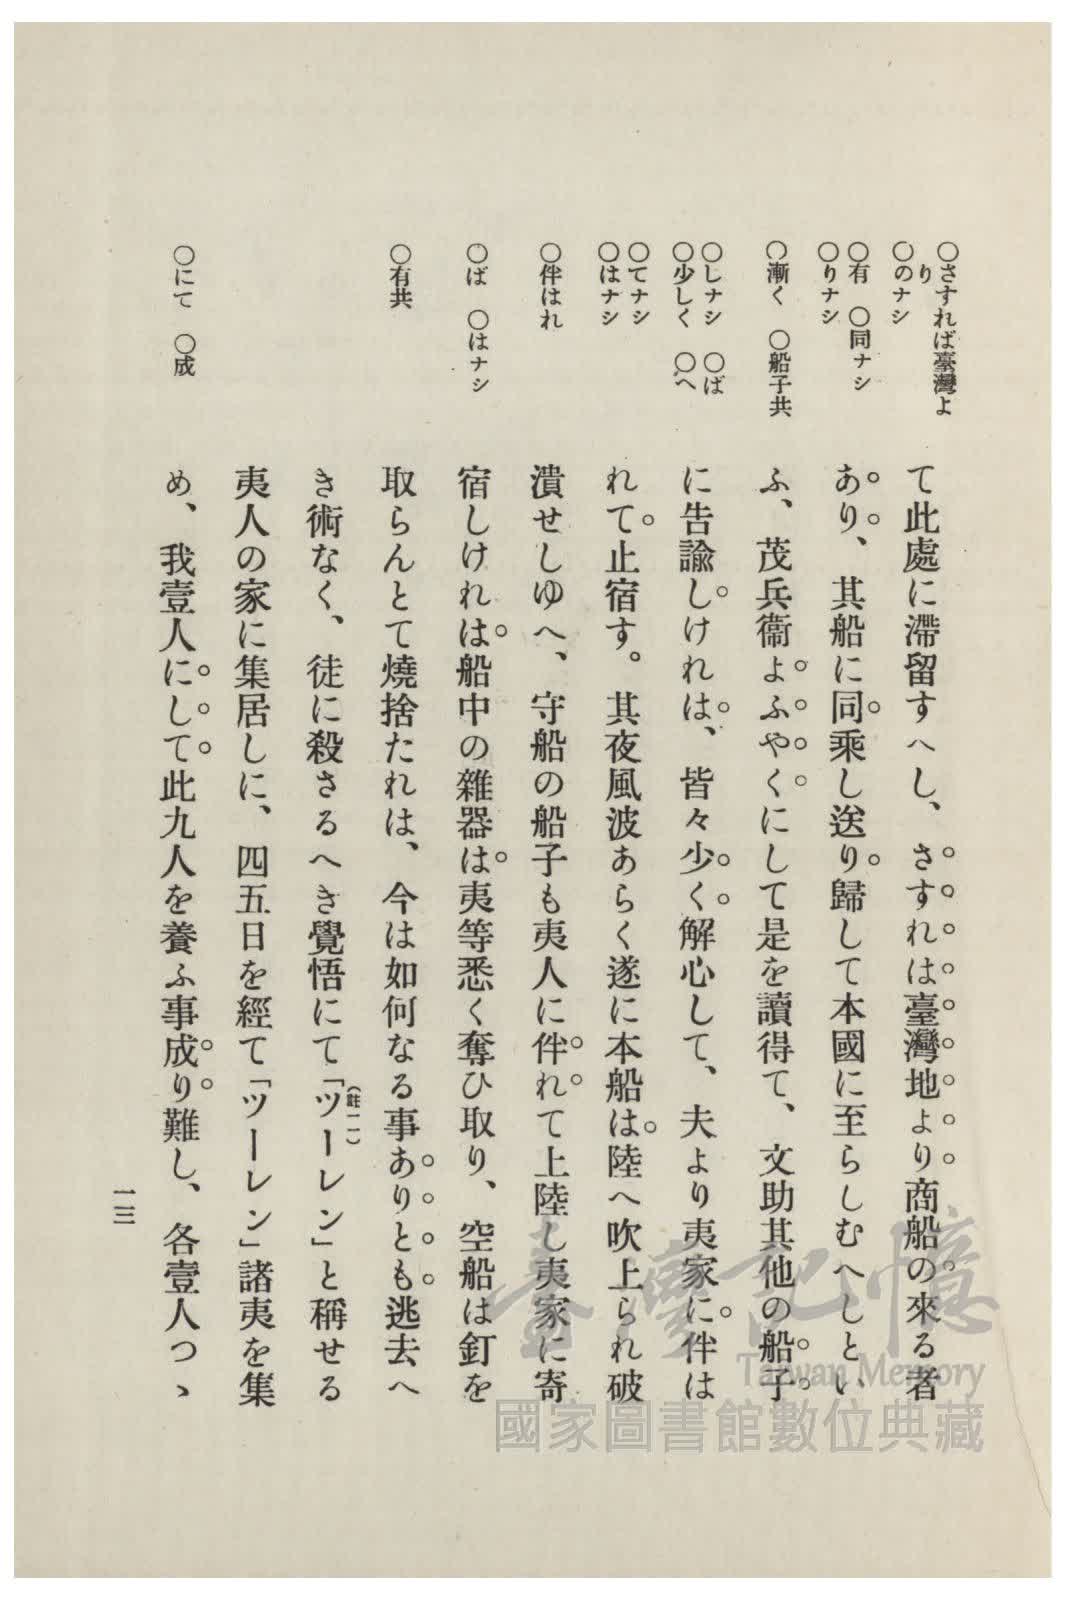 ○さすれば臺灣よ
り
○のナシ
○有　○同ナシ
○りナシ
○漸く　○船子共
○しナシ　○ば
○少しく　○へ
○てナシ
○はナシ
○伴はれ
○ば　○はナシ
○有共
○にて　○成
て此處に滯留すへし、さすれは臺灣地より商船の來る者
あり、其船に同乘し送り歸して本國に至らしむへしとい
ふ、茂兵衞よふやくにして是を讀得て、文助其他の船子
に告諭しけれは、皆々少く解心して、夫より夷家に伴は
れて止宿す。其夜風波あらく遂に本船は陸へ吹上られ破
潰せしゆへ、守船の船子も夷人に伴れて上陸し夷家に寄
宿しけれは船中の雜器は夷等悉く奪ひ取り、空船は釘を
取らんとて燒捨たれは、今は如何なる事ありとも逃去へ
き術なく、徒に殺さるへき覺悟にて「ツーレン」と稱せる
（註一一）
夷人の家に集居しに、四五日を經て「ツーレン」諸夷を集
め、我壹人にして此九人を養ふ事成り難し、各壹人つゝ
一三
臺灣記憶
Taiwan Memory
國家圖書館數位典藏